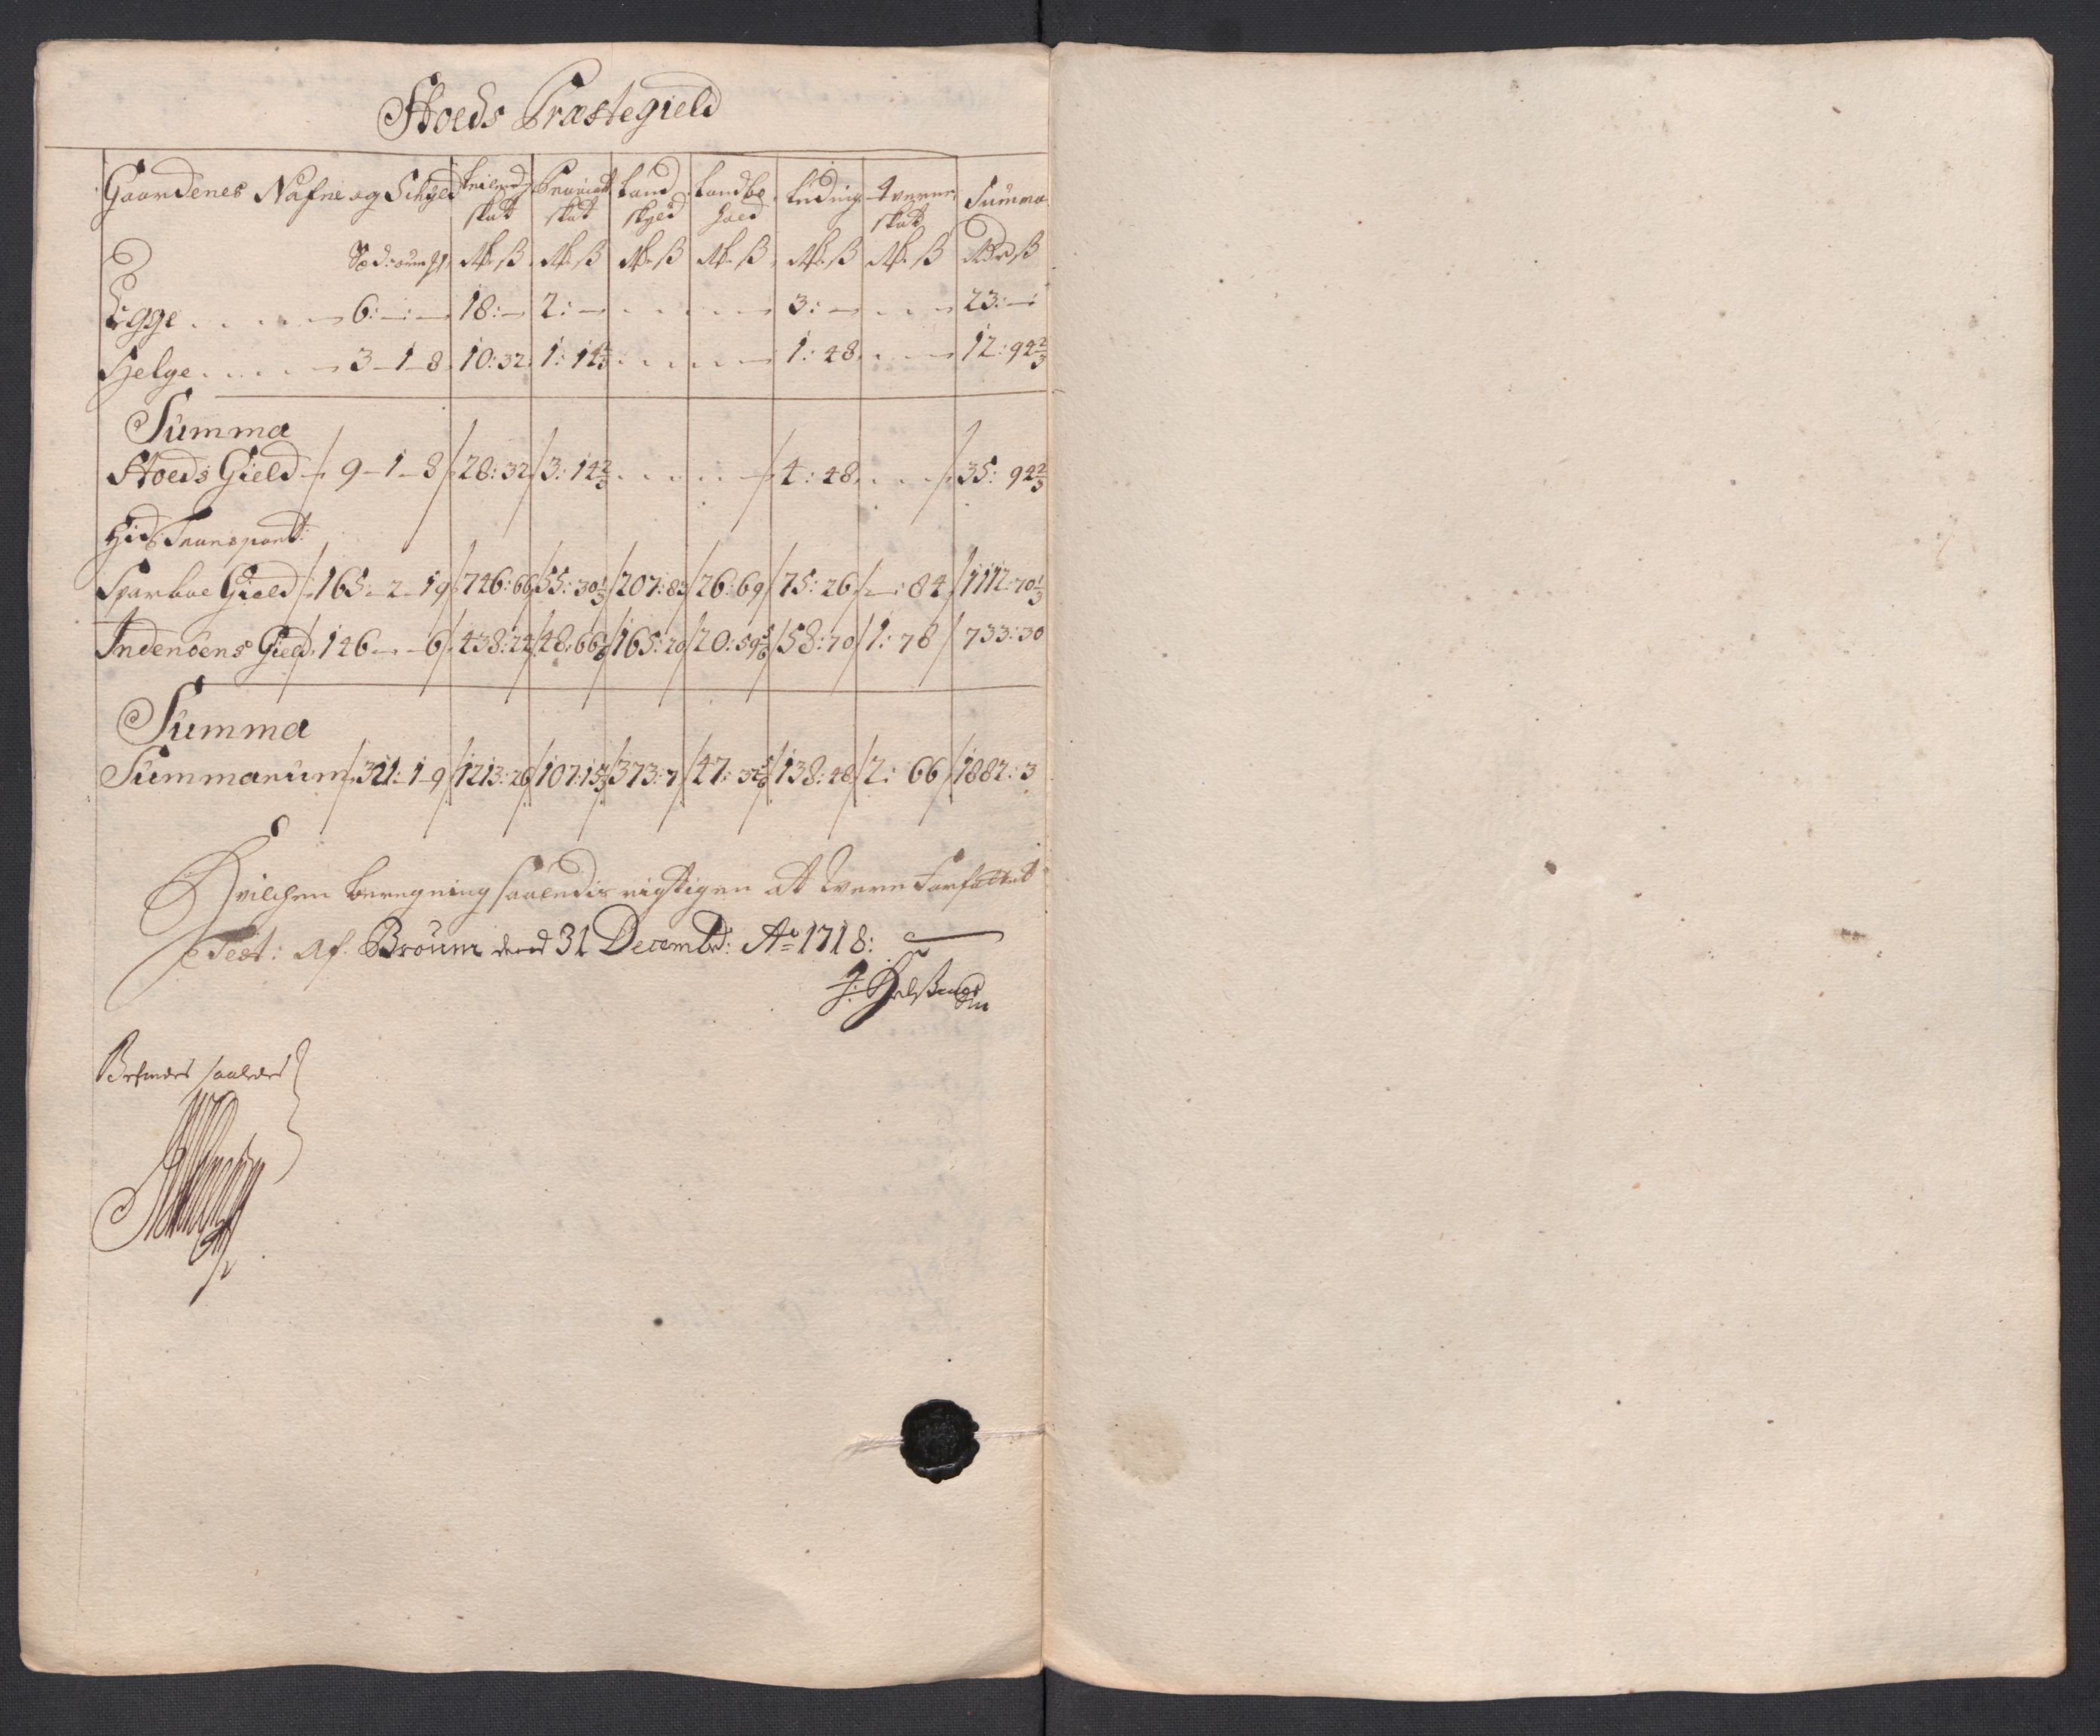 Stoeds Præstegield
Gaardenes Nafne og Schyld Leilends skat Proviant skat Land skyld Landbo hold Leding Qvern skat Summa
Sp d: ør mrk Rd ß Rd ß Rd ß Rd ß Rd ß Rd ß Rd ß
Egge . . . . — 6: —: — 18: — 2: — . . . . — 3: — . . — 23: —:
Helge . . . . — 3 – 1 – 8 10: 32 1: 14 2/3 . . . . — 1: 48 . . — 12: 94 2/3
Summa
Stoeds Gield 9 – 1 – 8 28: 32 3: 14 2/3 . . . . — 4: 48 . . 35: 94 2/3
Hid Transport
Sparboe Gield 165 – 2 – 19 746: 66 55: 30 1/3 207: 83 26: 69 75: 26 —: 84 1112: 70 1/3
Inderøens Gield 146 – – 6 438: 24 48: 66 165: 20 20: 59 5/6 58: 70 1: 78 733: 30
Summa
Summarum 321 – 1 – 9 1213: 26 107: 15 373: 7 47: 32 5/6 138: 48 2: 66 1882: 3
Hvilchen beregning saaledis rigtigen at were forfattet
Test: Af Broum dend 31 Decembr: Ao 1718:
Befindes saaledes